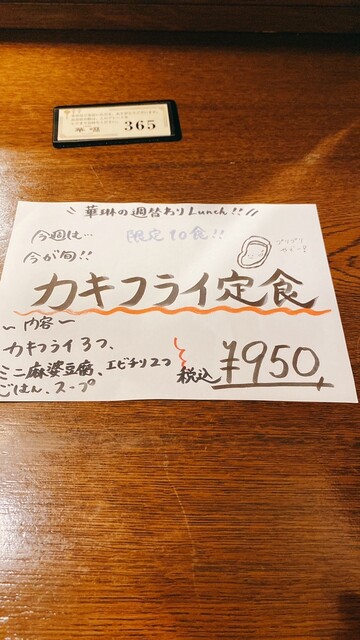 365
華琳の週替わりLunch!!
今週は… 限定10食!!
今が旬!! プリプリ
カキフライ定食
〜内容〜
カキフライ3つ、
ミニ麻婆豆腐、エビチリ2つ
ごはん、スープ
税込¥950,